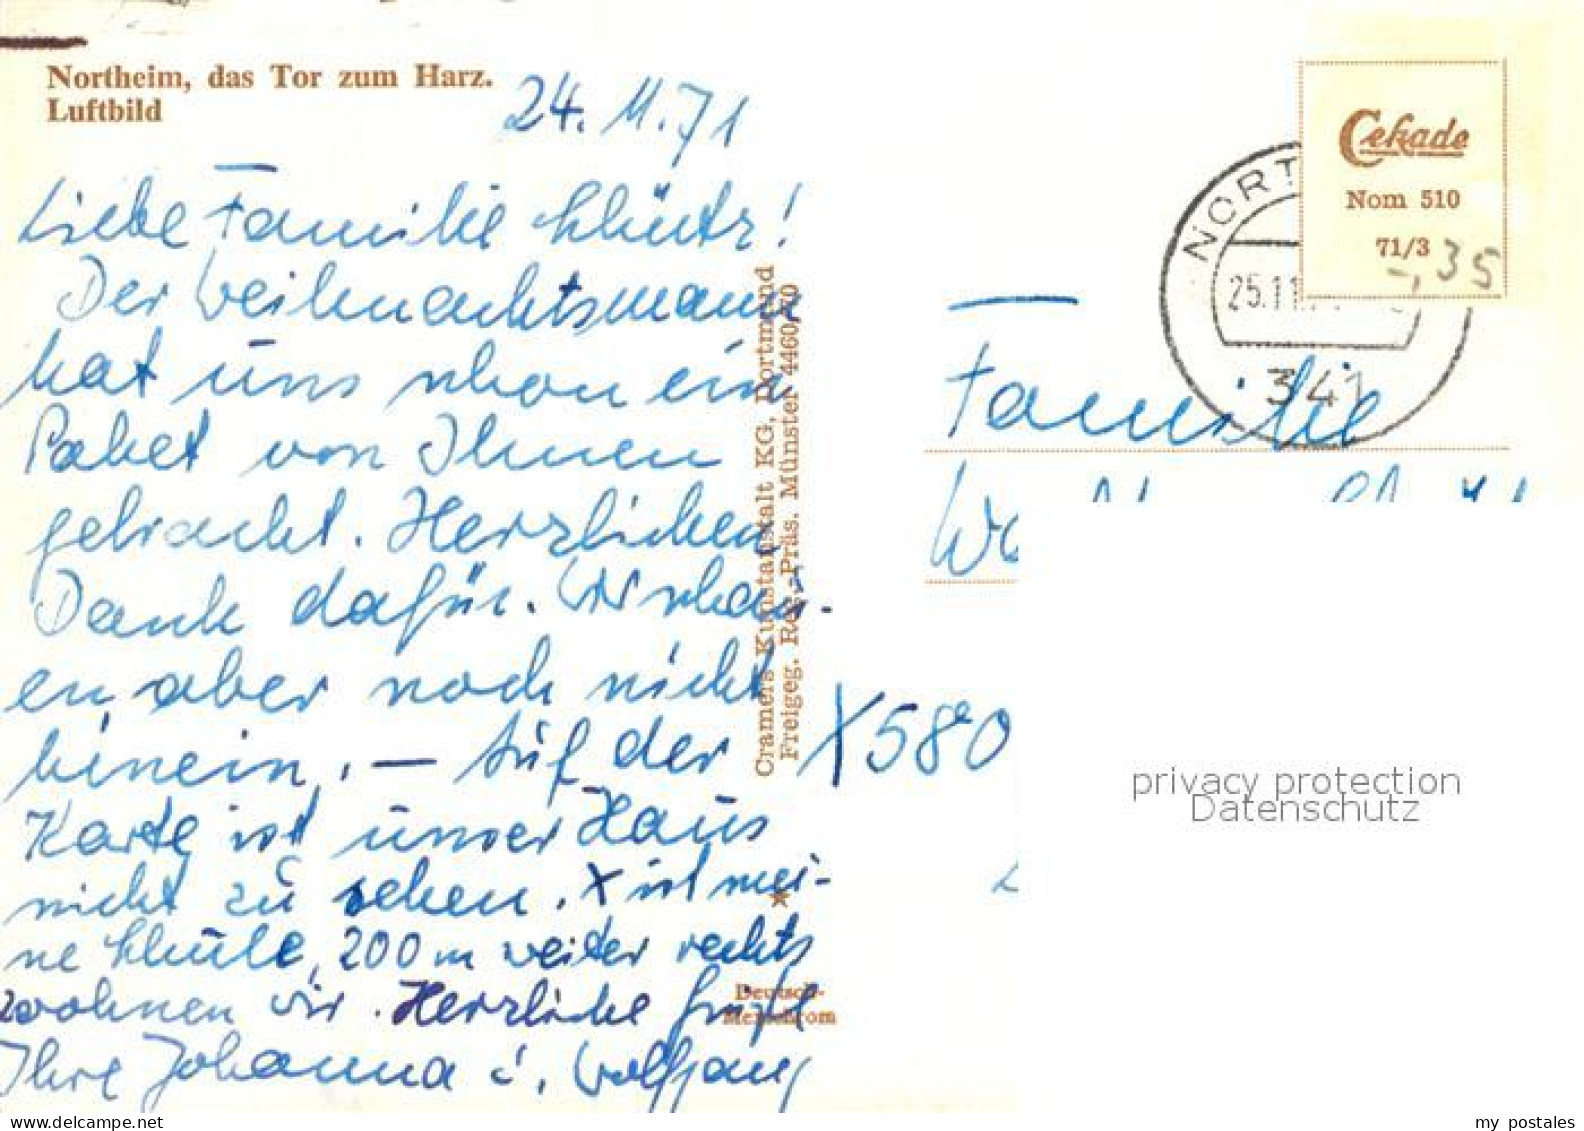 Northeim, das Tor zum Harz.
Luftbild
24. 11. 71
Liebe Familie Schütz!
Der Weihnachtsmann
hat uns schon ein
Paket von Ihnen
gebracht. Herzlichen
Dank dafür. Wir schau-
en aber noch nicht
hinein. — Auf der
Karte ist unser Haus
nicht zu sehen. X ist mei-
ne Schule, 200 m weiter rechts
wohnen wir. Herzliche Grüße
Ihre Johanna u. Wolfgang
Cramers Kunstanstalt KG, Dortmund
Freigeg. Reg.-Präs. Münster 4460/70
Deutsch-
Cekade
Nom 510
71/3
-,35
NORT
25.11.
341
Familie
X580
privacy protection
Datenschutz
my postales
www.delcampe.net